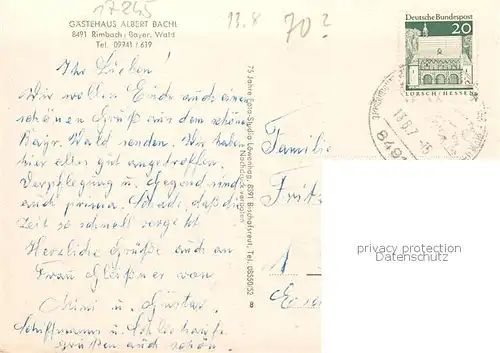 17245
13.8
70?
GÄSTEHAUS ALBERT BACHL
8491 Rimbach / Bayer. Wald
Tel. 09941 / 619
Ihr Lieben!
Wir wollen Euch auch einen
schönen Gruß aus dem schönen
Bayr. Wald senden. Wir haben
hier alles gut angetroffen.
Verpflegung u. Gegend sind
auch prima. Schade, daß die
Zeit so schnell vergeht.
Herzliche Grüße auch an
Frau von
Mimi u. Gustav
Schiffmanns u.
grüßen auch schön.
75 Jahre Foto-Studio Löwenhag, 8391 Bischofsreut, Tel. 08550/
Nachdruck verboten
8
Familie
Fritz
Deutsche Bundespost
20
LORSCH/HESSEN
13.8.7
849
privacy protection
Datenschutz